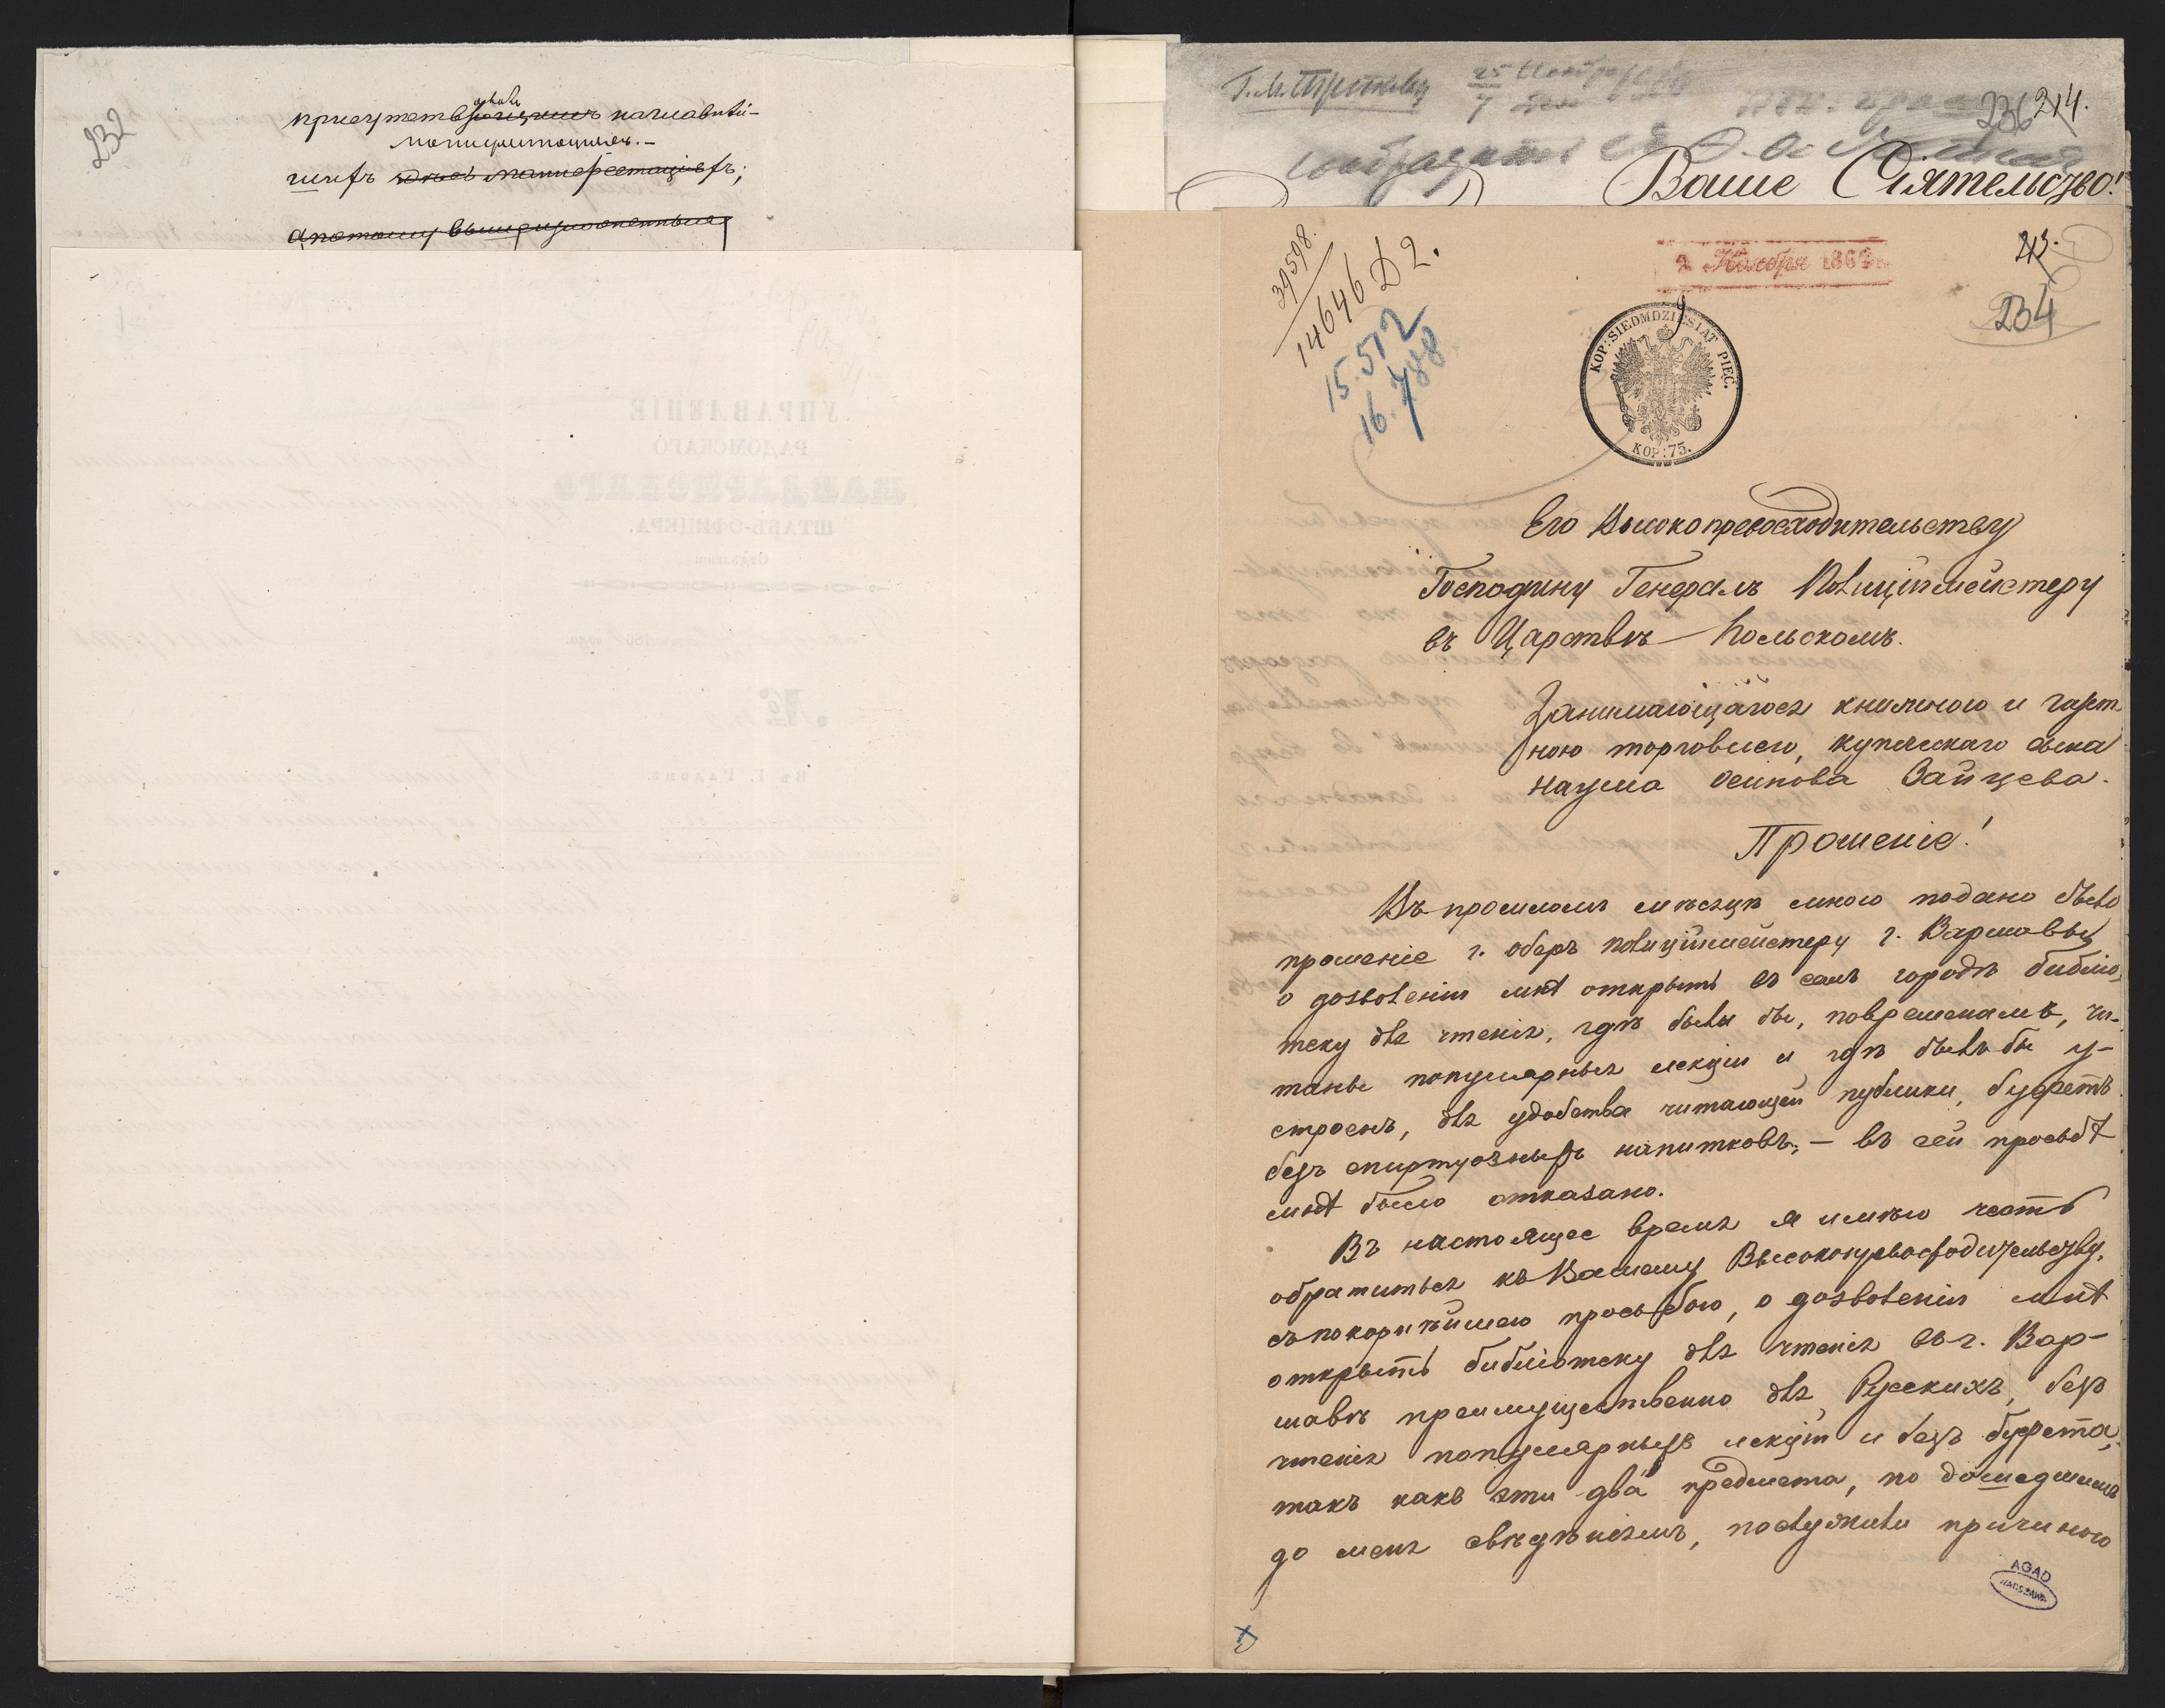 232
присутств
полициотомъ.
шихъ здѣсь манифестаціяхъ;
а потому вышеизложенныя
236 214.
Ваше Сіятельство!
39598.
14646 D 2.
15.512
16.788
2 Ноября 186
213.
234
KOP: SIEDMDZIESIAT PIĘĆ.
KOP: 75.
Его Высокопревосходительству
Господину Генералъ Полиціймейстеру
въ Царствѣ Польскомъ.
Занимающагося книжною и газет
ною торговлею, купеческаго сына
Наума Осипова Зайцева.
Прошеніе!
Въ прошломъ мѣсяцѣ мною подано было
прошеніе г. оберъ полиціймейстеру г. Варшавы
о дозволеніи мнѣ открыть въ семъ городѣ библіо-
теку для чтенія, гдѣ были бы, повременамъ, чи-
таны популярныя лекціи и гдѣ былъ бы у-
строенъ, для удобства читающей публики, буфетъ
безъ спиртуозныхъ напитковъ; — въ сей просьбѣ
мнѣ было отказано.
Въ настоящее время я имѣю честь
обратиться къ Вашему Высокопревосходительству,
съ покорнѣйшею просьбою, о дозволеніи мнѣ
открыть библіотеку для чтенія въ г. Вар-
шавѣ преимущественно для Русскихъ, безъ
чтенія популярныхъ лекцій и безъ буфета,
такъ какъ эти два предмета, по дошедшимъ
до меня свѣдѣніямъ, послужили причиною
AGAD
WARSZAWA